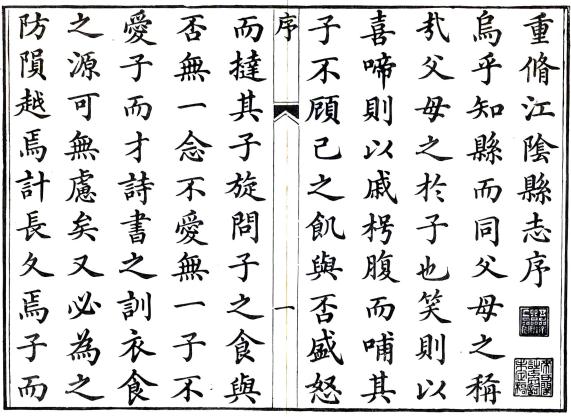 重脩江隂縣志序
烏乎知縣而同父母之稱
㢤父母之於子也笑則以
喜啼則以戚枵腹而哺其
子不顧己之飢與否盛怒
序 一
而撻其子旋問子之食與
否無一念不愛無一子不
愛子而才詩書之訓衣食
之源可無慮矣又必為之
防隕越焉計長久焉子而